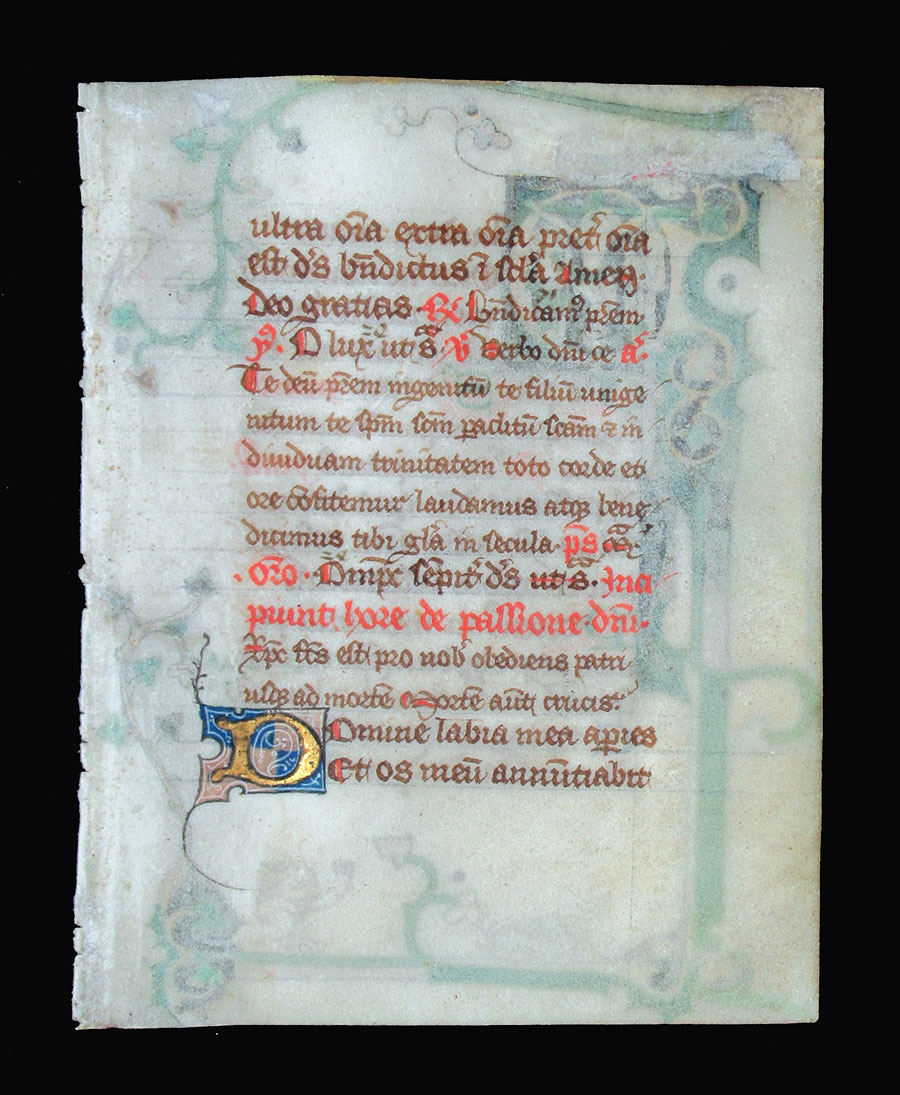 ultra oīa extra oīa pret̄ oīa
est d̄s bn̄dictus ⁊ scl̄a Amen·
Deo gratias · R̄ Bn̄dicam᾿ pr̄em
v᾿. O lux ut s̄ · V᾿ Verbo dn̄i ce a᾿·
Te deū pr̄em ingenitū te filiū unige
nitum te sp̄m sc̄m paclitū sc̄am ⁊ in
diuiduam trinitatem toto corde et
ore cōfitemur laudamus atqꝫ bene
dicimus tibi gl̄a in secula · p̄s
· Or̄o · Om̄ps sēpit̄ d̄s ut s̄ · Inci
piunt hore de passione · dn̄i ·
Xp̄c f̄c̄s est pro nob᾿ obediens patri
usqꝫ ad mortē Mortē aūt crucis.
Domine labia mea apies
Et os meū annūtiabit